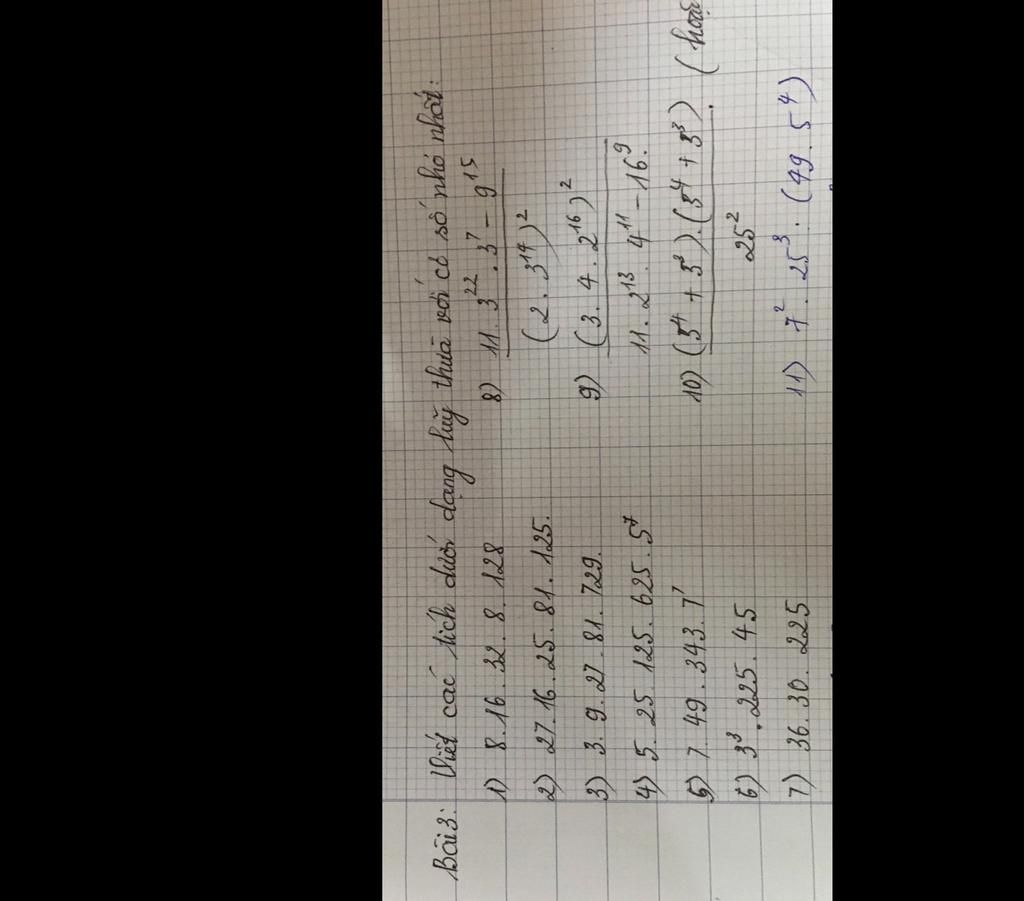 Bài 3: Viết các tích dưới dạng luỹ thừa với cơ số nhỏ nhất:
1) 8.16.32.8.128
2) 27.16.25.81.125.
3) 3.9.27.81.729.
4) 5.25.125.625.5⁷
5) 7.49.343.7⁷
6) 3³.225.45
7) 36.30.225
8) 11.3²².3⁷ - 9¹⁵
(2.3¹⁴)²
9) (3.4.2¹⁶)²
11.2¹³.4¹¹ - 16⁹.
10) (5⁴ + 5³).(5⁴ + 5³). (hoặc
25²
11) 7².25³.(49.5⁴)